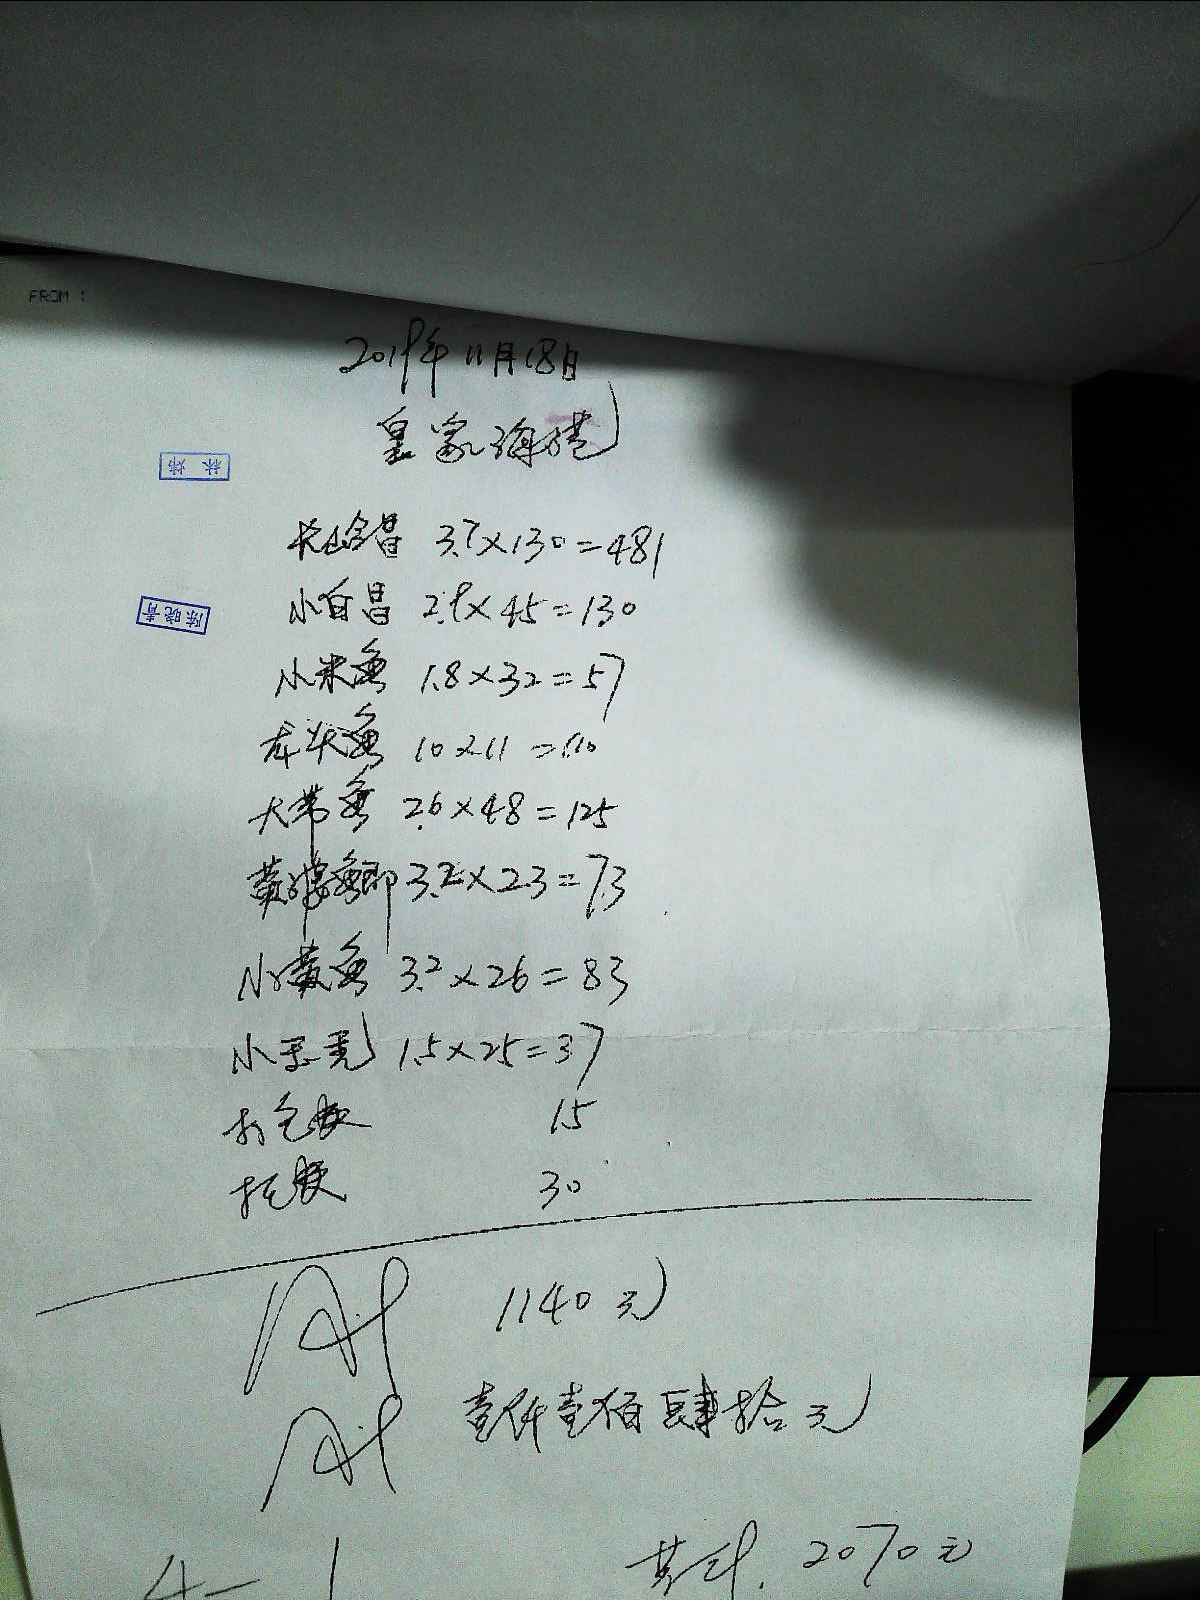 FROM :
2019年11月18日
皇家海港
林 炜
大山全昌 3.7×130=481
小白昌 2.9×45=130
陈晓青
小米鱼 1.8×32=57
龙头鱼 10×11=110
大带鱼 2.6×48=125
黄 鱼 3.2×23=73
小黄鱼 3.2×26=83
小 1.5×25=37
打包费 15
托费 30
1140元
壹仟壹佰肆拾元
共计. 2070元
4-1